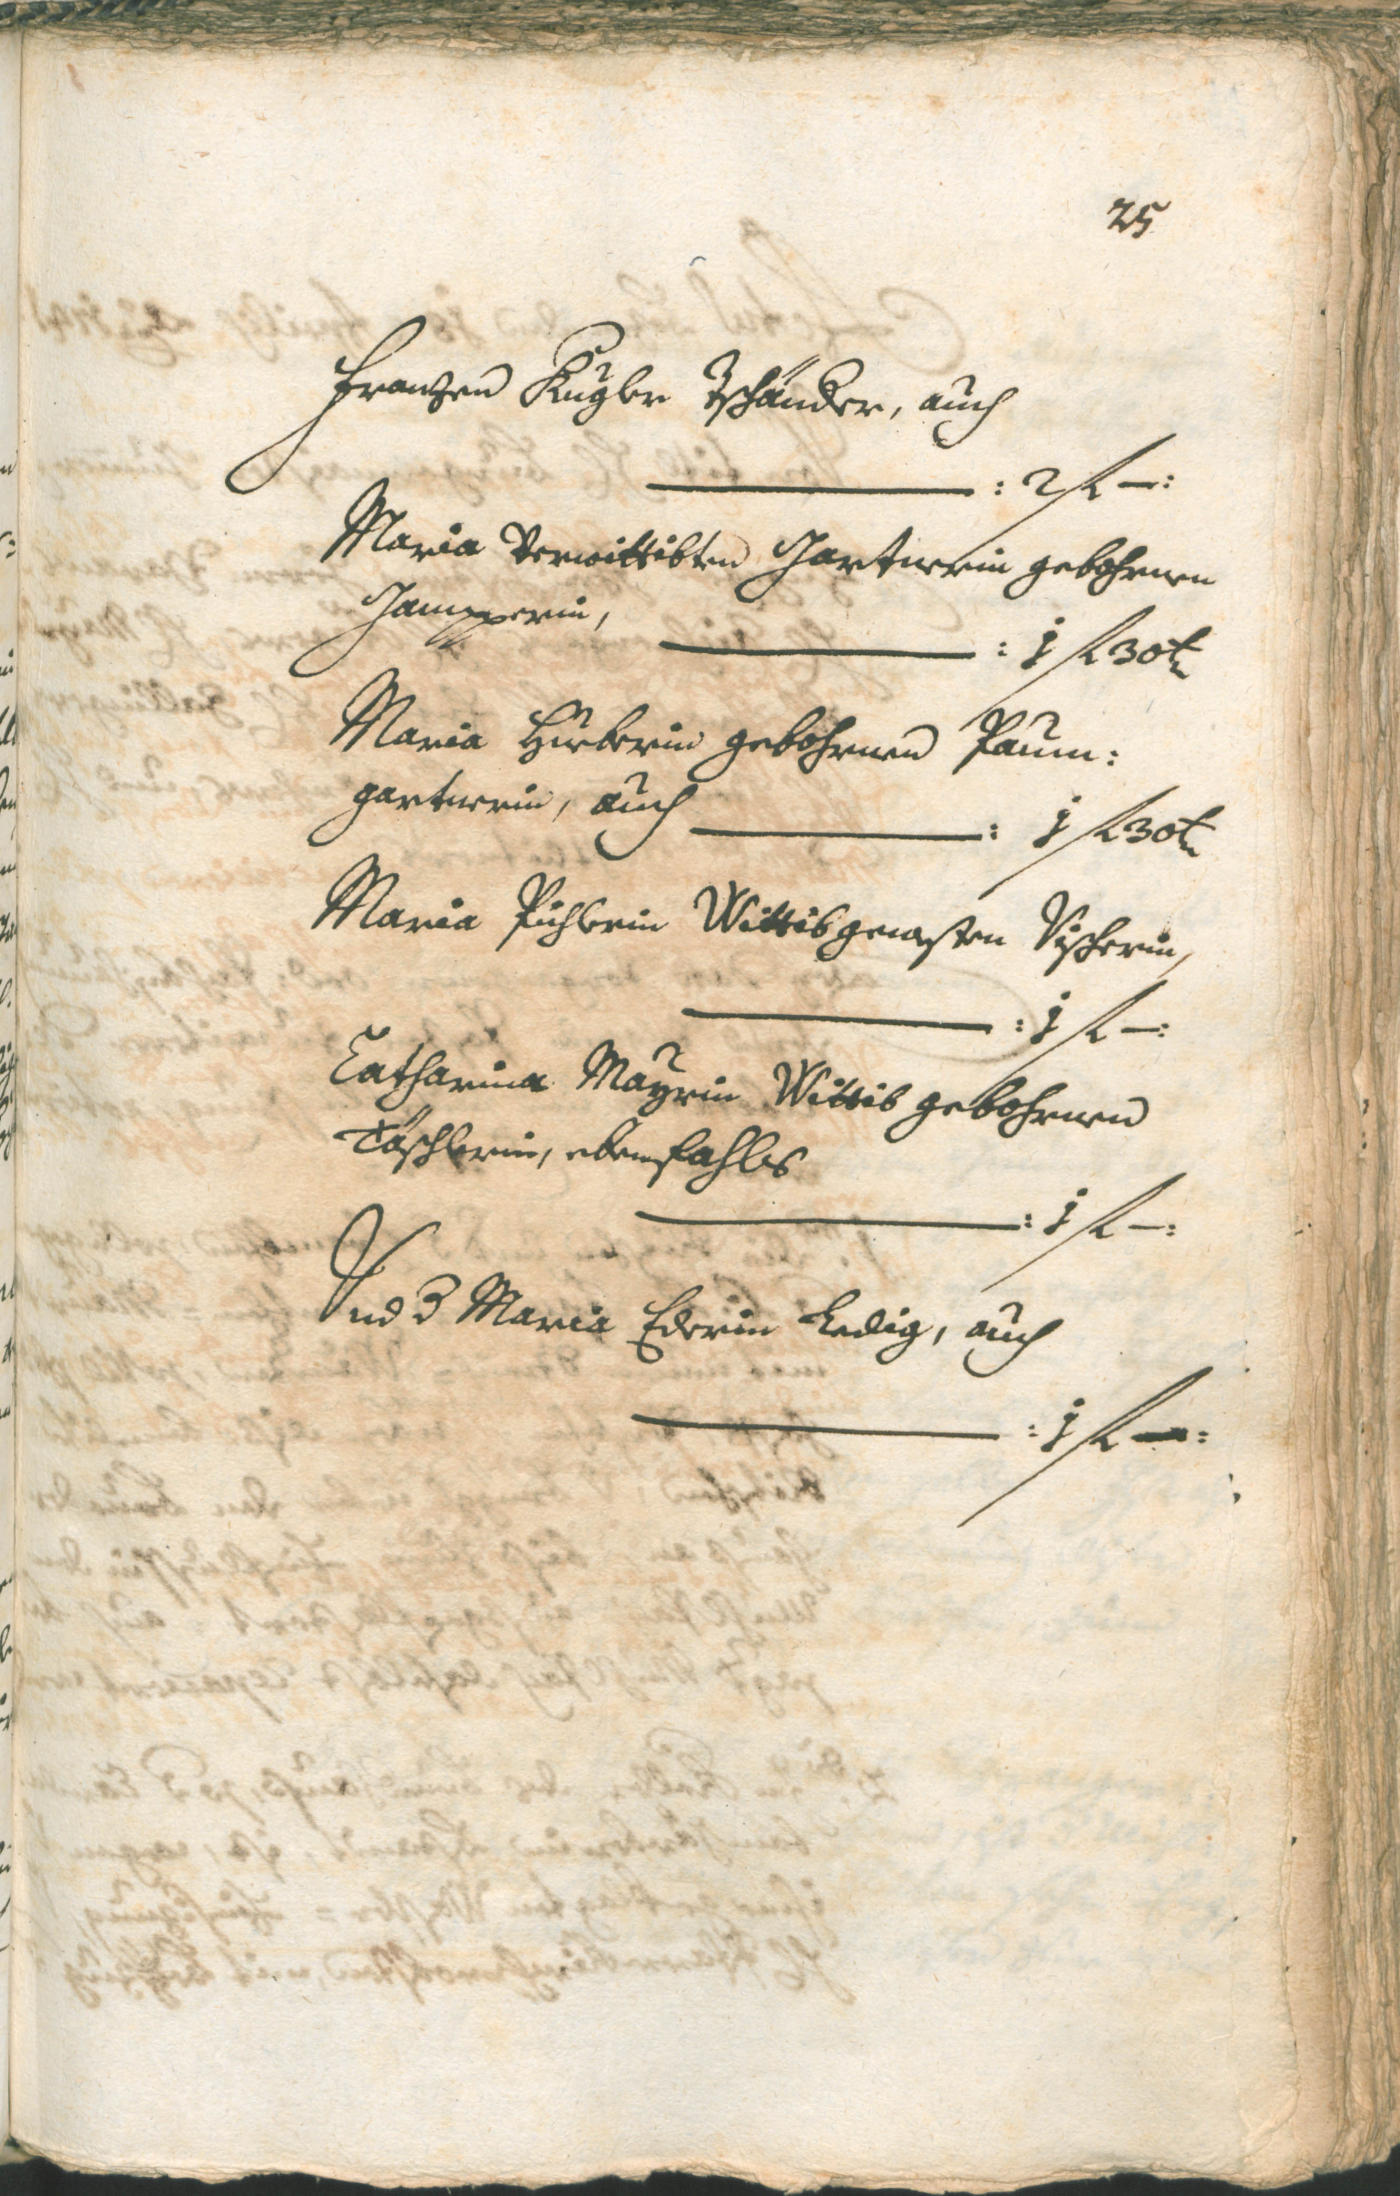 25
Franzen Kugler Zschänder, auch
: 2 f —:
Maria Verwittibten Gartnerin gebohrnen
Gampperin,
: 1 f 30 k
Maria Hueberin gebohrnen Paum:
gartnerin, auch : 1 f 30 k
Maria Pichlerin Wittib genasten Vischerin,
: 1 f —:
Catharina Mayrin Wittib gebohrnen
Täschlerin, ebenfahls
: 1 f —:
Und 3 Maria Ederin Ledig, auch
: 1 f —: